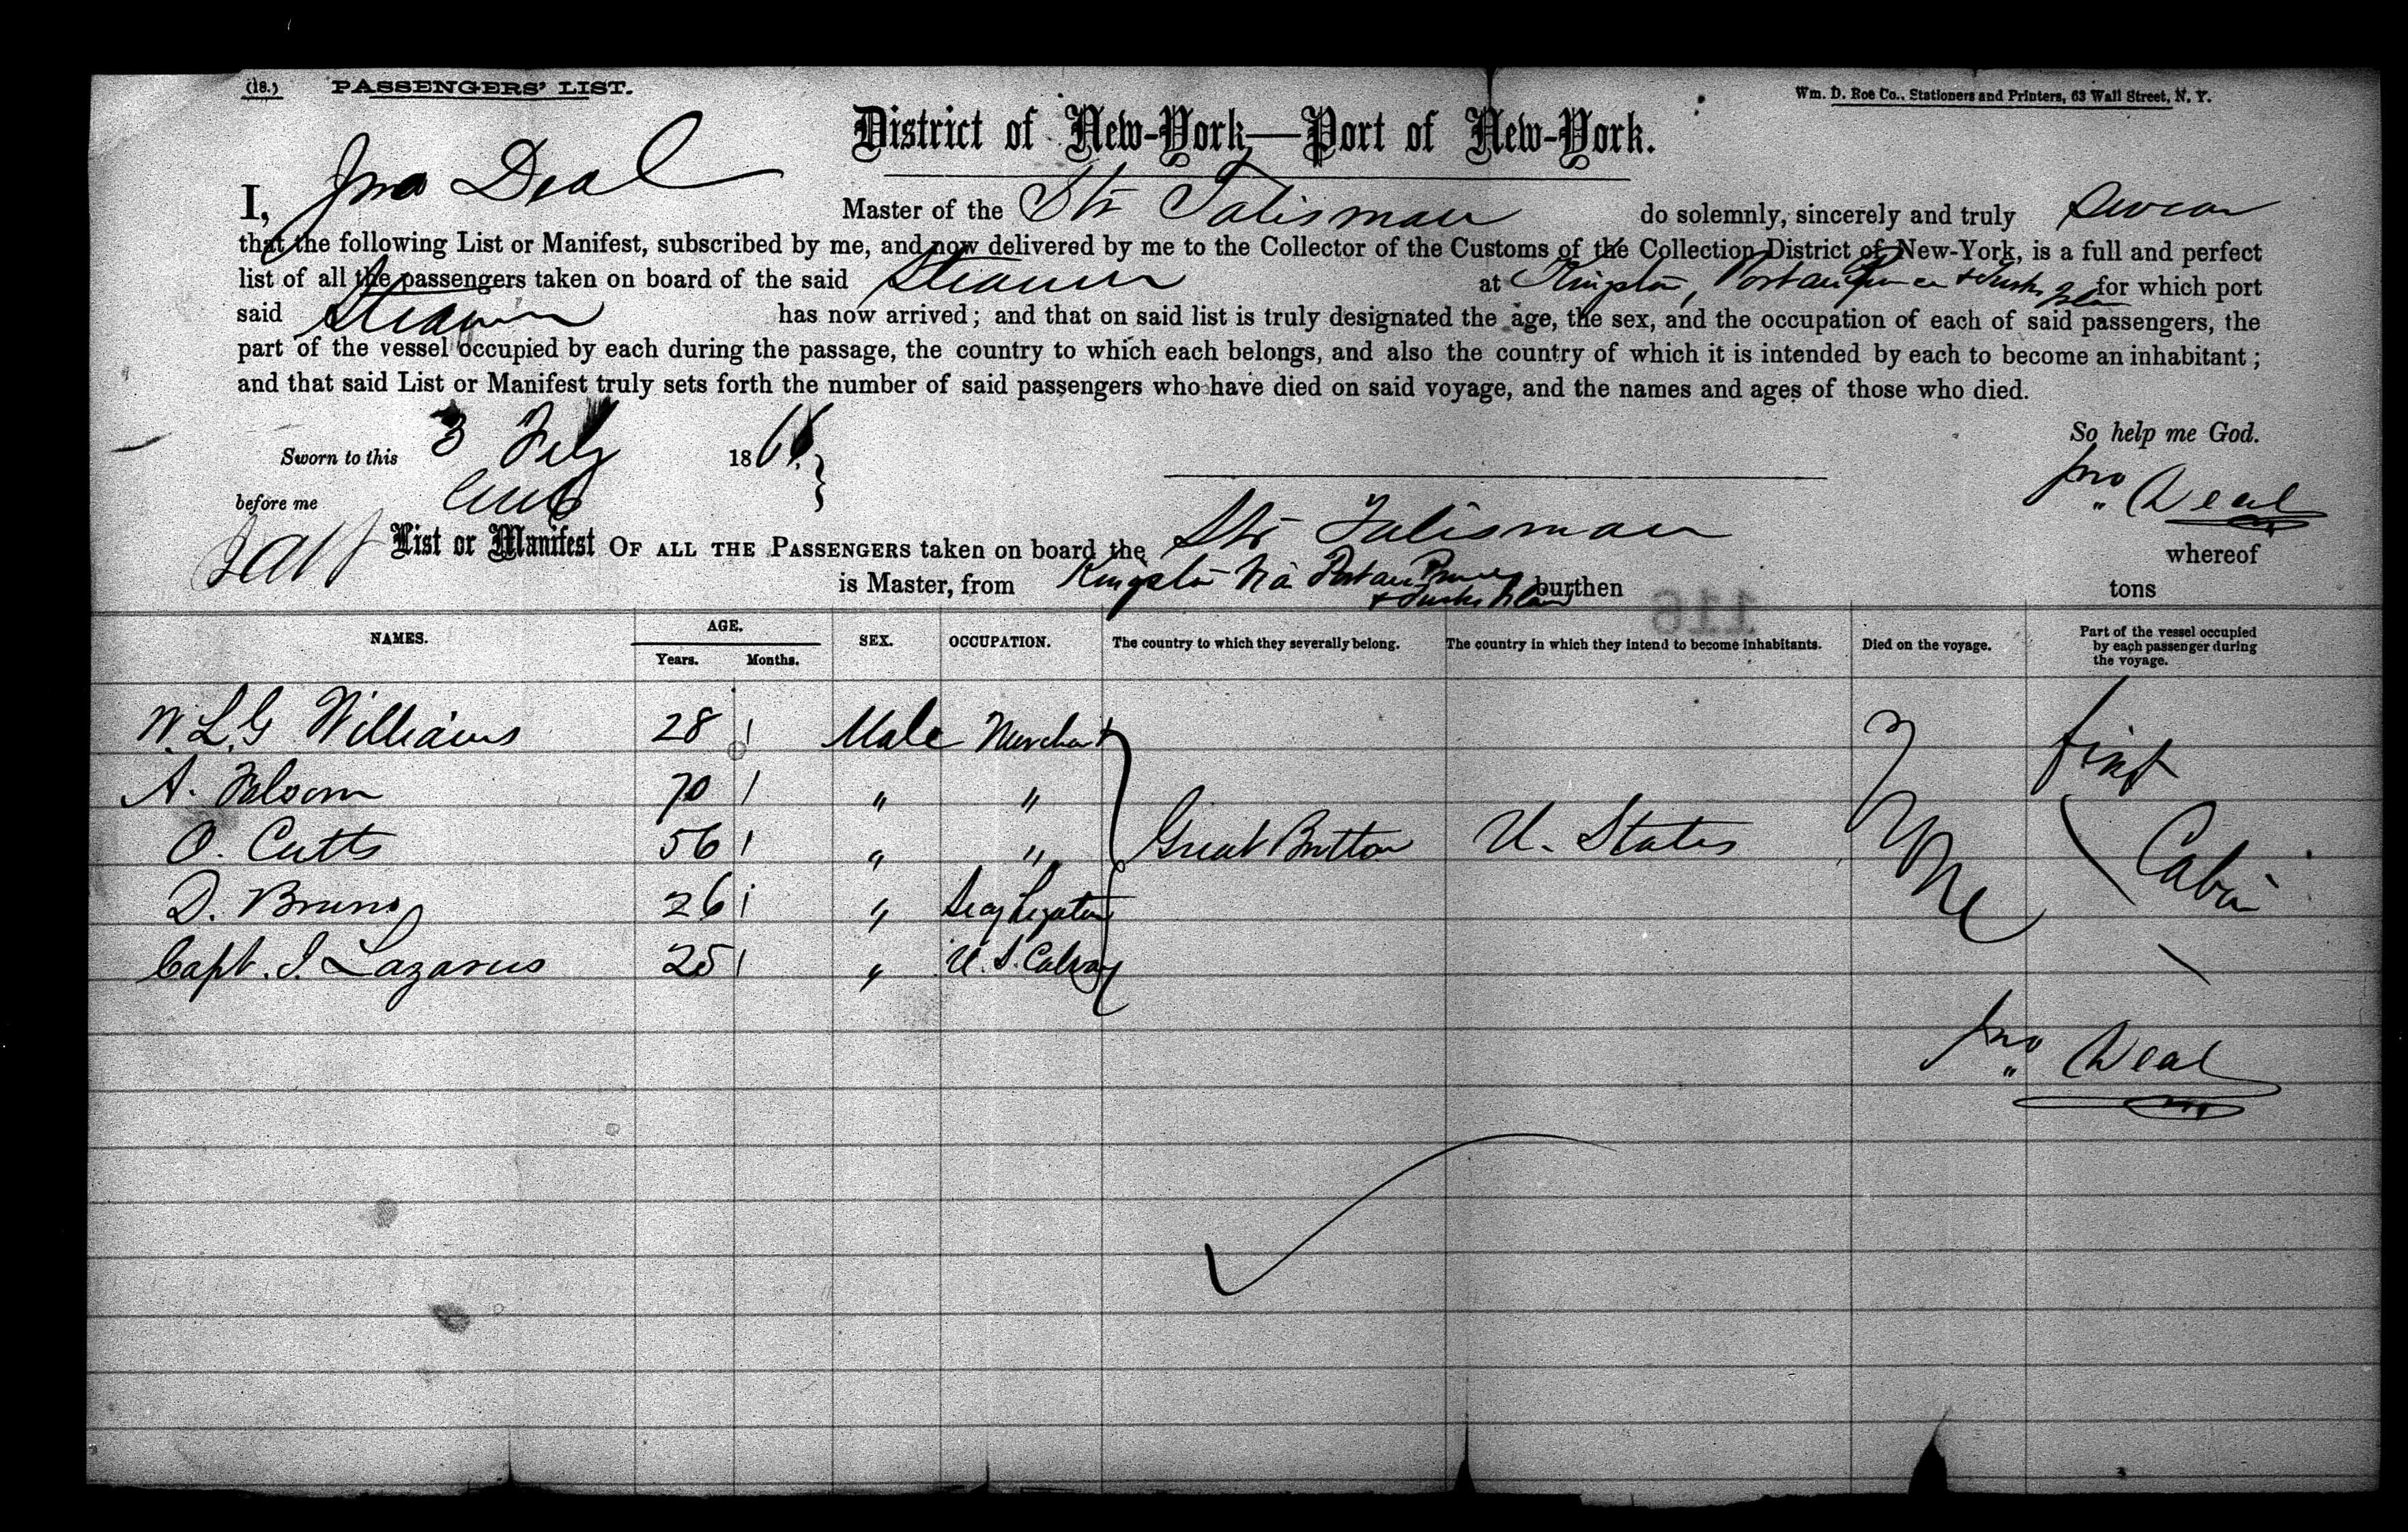 (18.) PASSENGERS' LIST.
Wm. D. Roe Co., Stationers and Printers, 63 Wall Street, N. Y.
District of New-York—Port of New-York.
I, Jno Deal Master of the Str Talisman do solemnly, sincerely and truly swear
that the following List or Manifest, subscribed by me, and now delivered by me to the Collector of the Customs of the Collection District of New-York, is a full and perfect
list of all the passengers taken on board of the said Steamer at Kingston, Port au Prince & Turks Island for which port
said Steamer has now arrived; and that on said list is truly designated the age, the sex, and the occupation of each of said passengers, the
part of the vessel occupied by each during the passage, the country to which each belongs, and also the country of which it is intended by each to become an inhabitant;
and that said List or Manifest truly sets forth the number of said passengers who have died on said voyage, and the names and ages of those who died.
So help me God.
Sworn to this 3 Feby 186
before me
Jno Deal
List or Manifest OF ALL THE PASSENGERS taken on board the Str Talisman whereof
is Master, from Kingston Via Port au Prince & Turks Island burthen tons
116
NAMES. AGE. Years. Months. SEX. OCCUPATION. The country to which they severally belong. The country in which they intend to become inhabitants. Died on the voyage. Part of the vessel occupied by each passenger during the voyage.
W. L. G Williams 28 Male Merchant
A. Folsom 70 " "
O. Cutts 56 " " Great Britton U. States None first Cabin
D. Bruno 26 " Secy Legation
Capt. J. Lazarus 25 " U. S. Calvary
Jno Deal